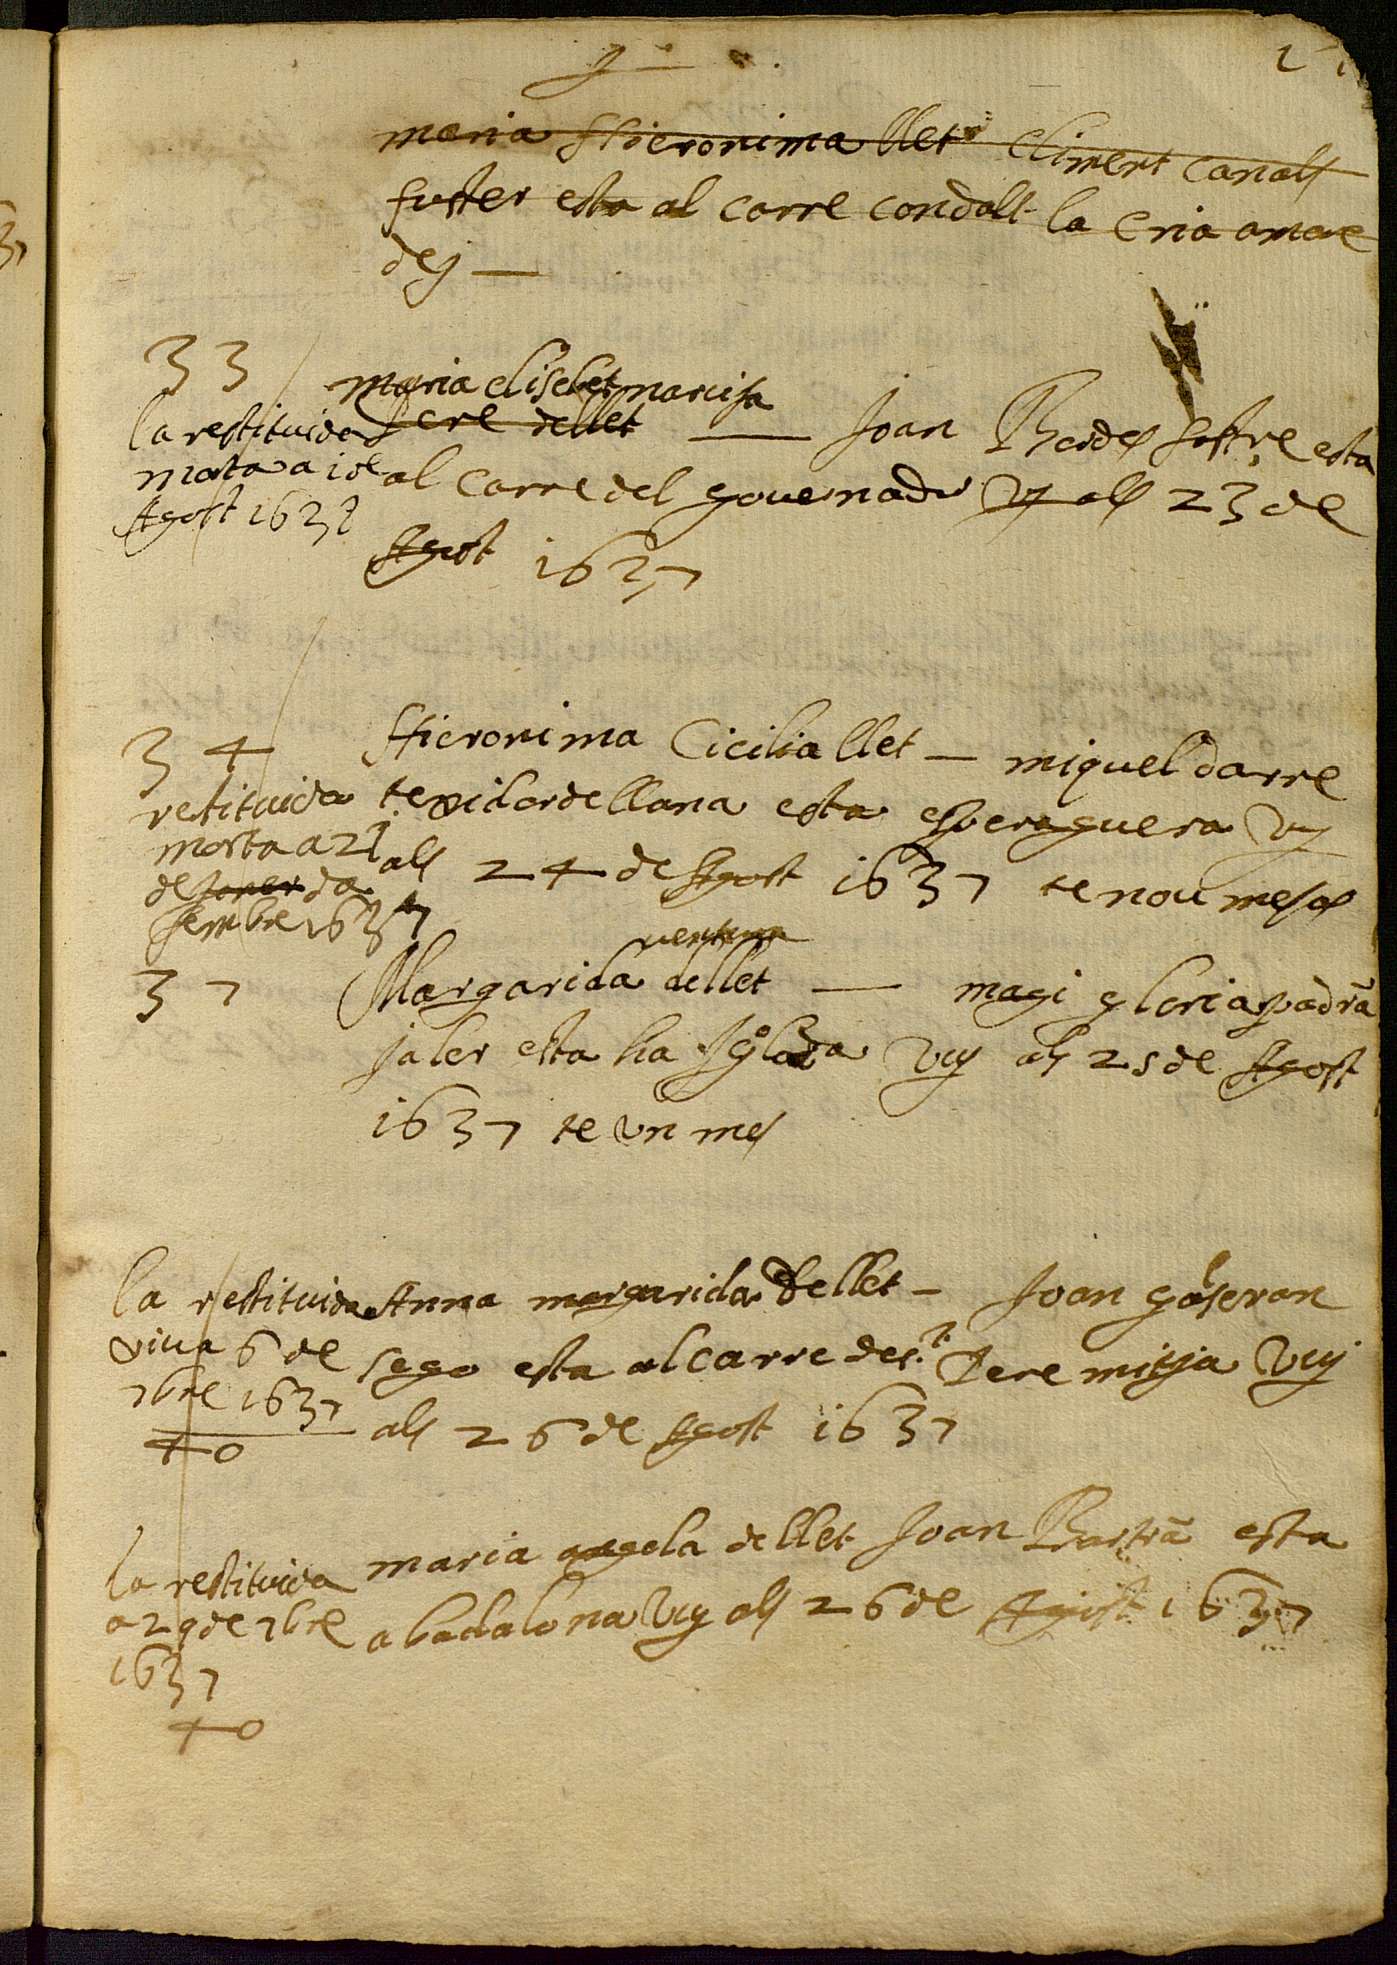 maria Hieronima llet climent Canalt
fuster esta al carre condalt la cria amare
dej —
33
maria elisebet narcisa
la restituida
Pere dellet — Joan sastre esta
morta a 1 de
al carre del governador vj als 23 de
Agost 1638
Agost 1637
34
Hieronima Cicilia llet — miquel darre
restituida
texidor de llana esta esperaguera vy
morta a 21
als 24 de Agost 1637 te nou mesos
de Janer de
sembre 1637
ventura
37
Margarida dellet — magi gloria padrã
jaler esta ha Iglada Vuy als 25 de Agost
1637 te un mes
la restituida
Anna margarida dellet — Joan galseran
viva 6 de
sego esta al carre de st. Pere mitja Vuy
7bre 1637
als 26 de Agost 1637
40
la restituida
maria angela dellet Joan Bartrã esta
a 29 de 7bre
abadalona Vuy als 26 de Agost 1637
1637
40